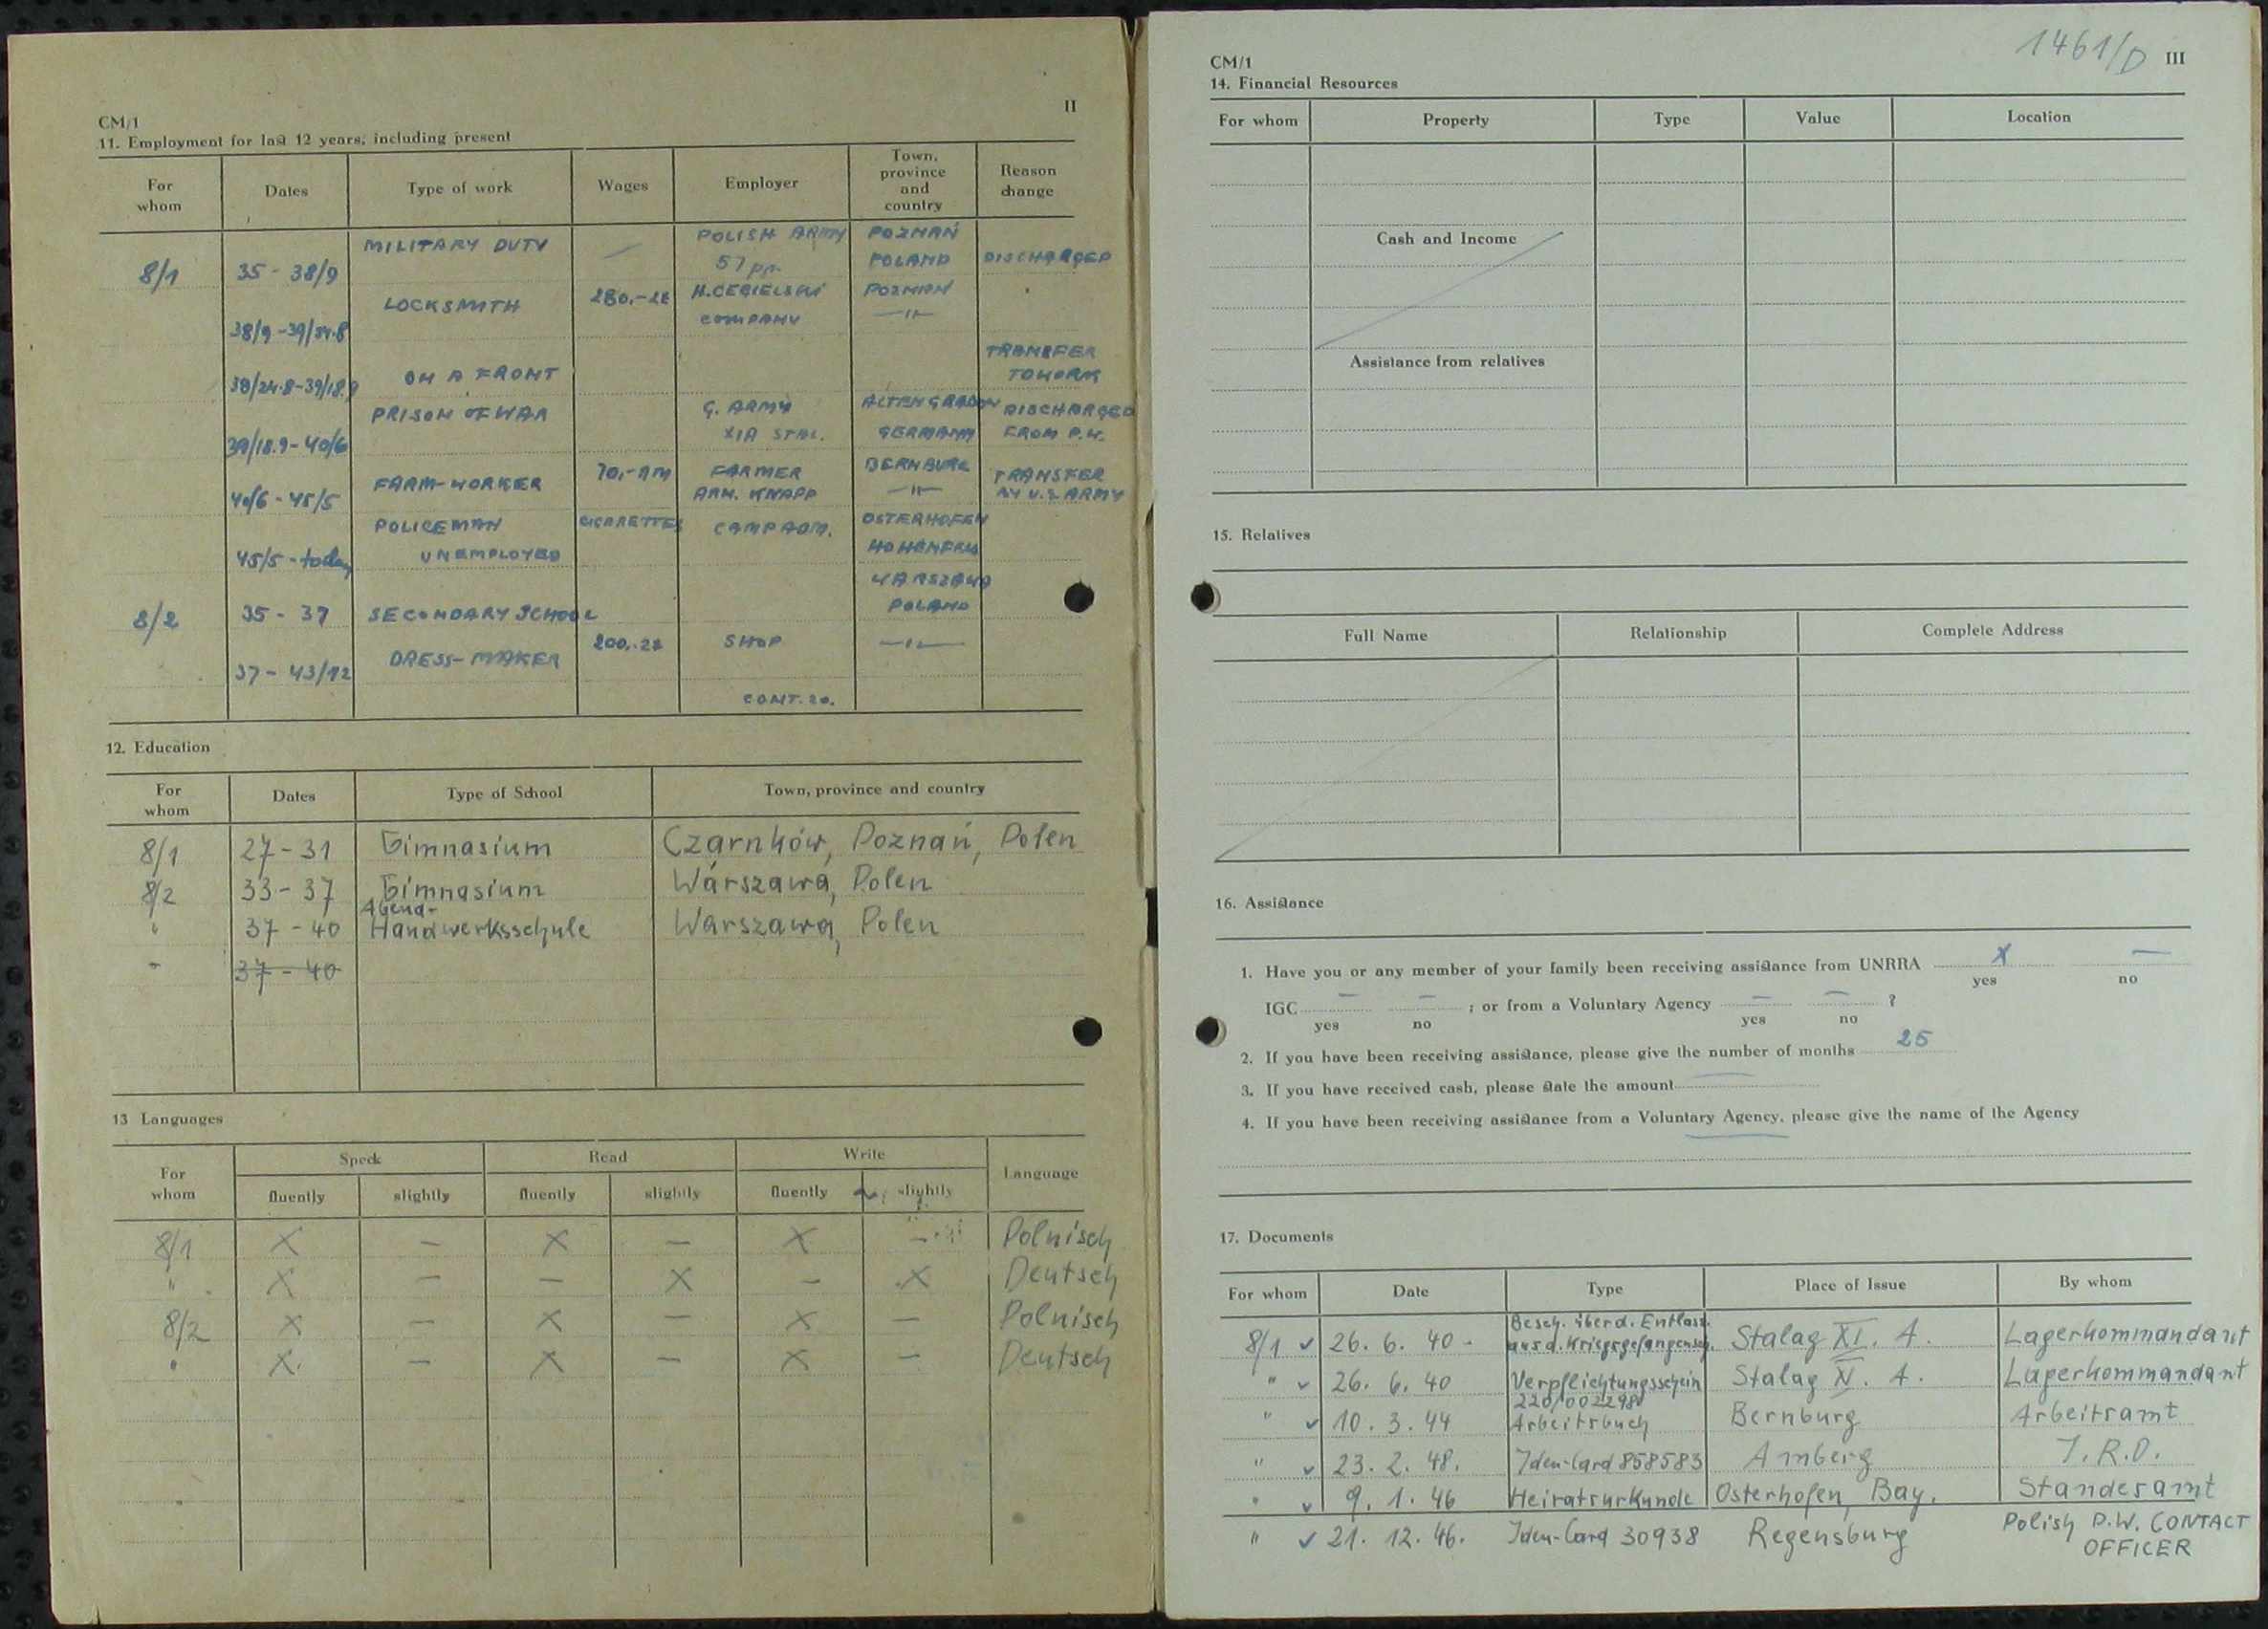 CM/1
II
11. Employment for last 12 years, including present
For whom Dates Type of work Wages Employer Town, province and country Reason change
MILITARY DUTY — POLISH ARMY POZNAŃ
8/1 35 - 38/9 57 pp. POLAND DISCHARGED
LOCKSMITH 280,- H.CEGIELSKI POZNAŃ
38/9 - 39/24.8 COMPANY —"—
TRANSFER
39/24.8-39/18.9 ON A FRONT TO WORK
PRISON OF WAR G. ARMY ALTENGRABOW DISCHARGED
39/18.9 - 40/6 XIA STAL. GERMANY FROM P.W.
FARM-WORKER 70,-RM FARMER BERNBURG TRANSFER
40/6 - 45/5 ARN. KNAPP —"— BY U.S ARMY
POLICEMAN CIGARETTES CAMP ADM. OSTERHOFEN
45/5 - today UNEMPLOYED HOHENFELS
WARSZAWA
8/2 35 - 37 SECONDARY SCHOOL POLAND
37 - 43/12 DRESS-MAKER 200,- SHOP —"—
CONT. 20.
12. Education
For whom Dates Type of School Town, province and country
8/1 27-31 Gimnasium Czarnków, Poznań, Polen
8/2 33-37 Gimnasium Warszawa, Polen
Abend-
" 37-40 Handwerksschule Warszawa, Polen
" 37-40
13 Languages
For whom Speck Read Write Language
fluently slightly fluently slightly fluently slightly
8/1 X — X — X — Polnisch
" X — — X — X Deutsch
8/2 X — X — X — Polnisch
" X — X — X — Deutsch
1461/D
CM/1 III
14. Financial Resources
For whom Property Type Value Location
Cash and Income
Assistance from relatives
15. Relatives
Full Name Relationship Complete Address
16. Assistance
1. Have you or any member of your family been receiving assistance from UNRRA X —
yes no
IGC — — ; or from a Voluntary Agency — — ?
yes no yes no
2. If you have been receiving assistance, please give the number of months 25
3. If you have received cash, please state the amount
4. If you have been receiving assistance from a Voluntary Agency, please give the name of the Agency
17. Documents
For whom Date Type Place of Issue By whom
Besch. über d. Entlass.
8/1 ✓ 26. 6. 40 - aus d. Kriegsgefangensch. Stalag XI. A. Lagerkommandant
" ✓ 26. 6. 40 Verpflichtungsschein Stalag XI. A. Lagerkommandant
220/002298
" ✓ 10. 3. 44 Arbeitsbuch Bernburg Arbeitsamt
" ✓ 23. 2. 48. Iden-Card 858583 Amberg I.R.O.
" ✓ 9. 1. 46 Heiratsurkunde Osterhofen, Bay. Standesamt
" ✓ 21. 12. 46. Iden-Card 30938 Regensburg Polish P.W. CONTACT
OFFICER